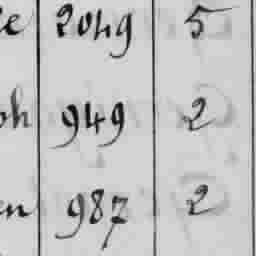 e 2049 5
oh 949 2
en 987 2